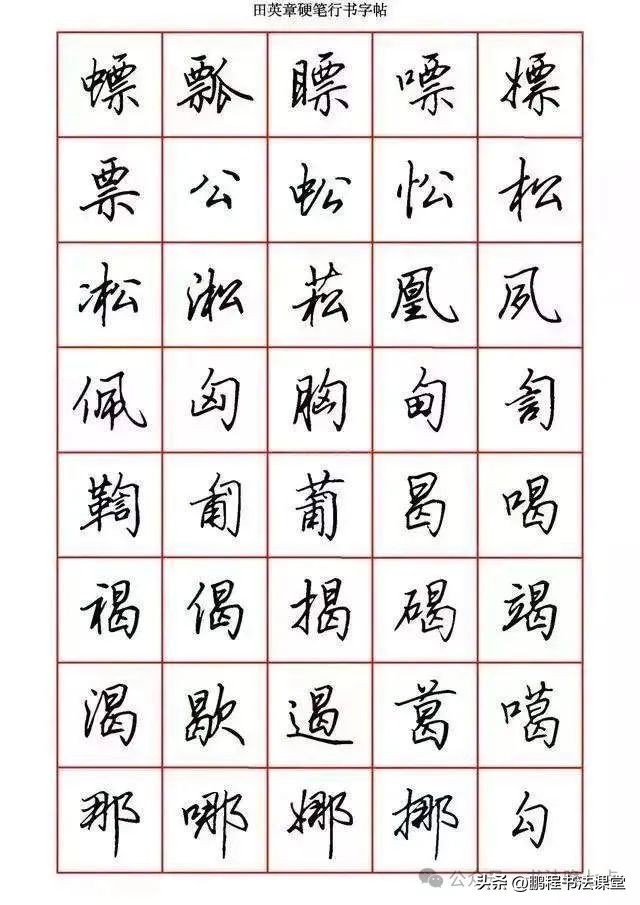 田英章硬笔行书字帖
螵瓢瞟嘌嫖
票公蚣忪松
凇淞菘凰夙
佩匈胸甸訇
鞫匍葡曷喝
褐偈揭碣竭
渴歇遏葛噶
那哪娜挪勾
头条 @鹏程书法课堂